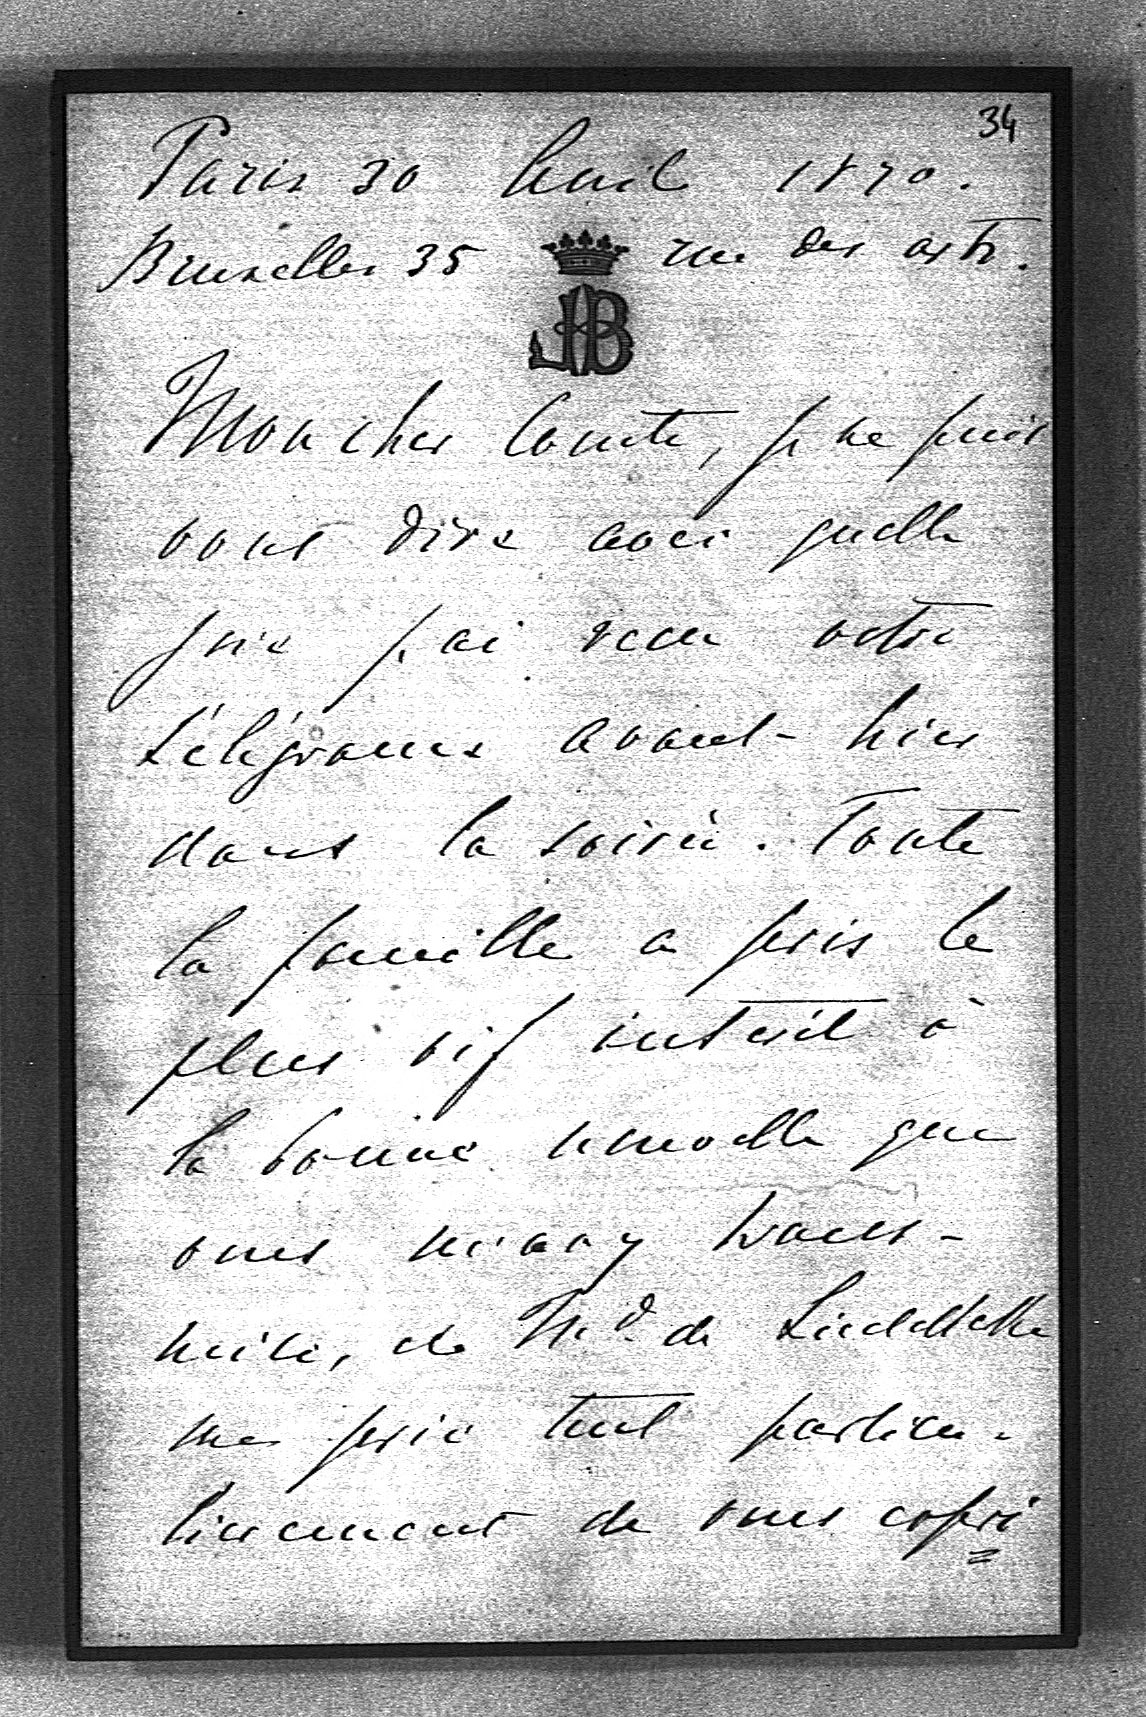 34
Paris 30 Avril 1870.
Bruxelles 35 rue des arts.
JB
Mon cher Comte, je ne puis
vous dire avec quelle
joie j'ai recu votre
télégramme avant-hier
dans la soirée. Toute
la famille a pris le
plus vif intérêt à
la bonne nouvelle que
vous m'avez trans-
mise, et Md. de
me prie tout particu-
lièrement de vous expri